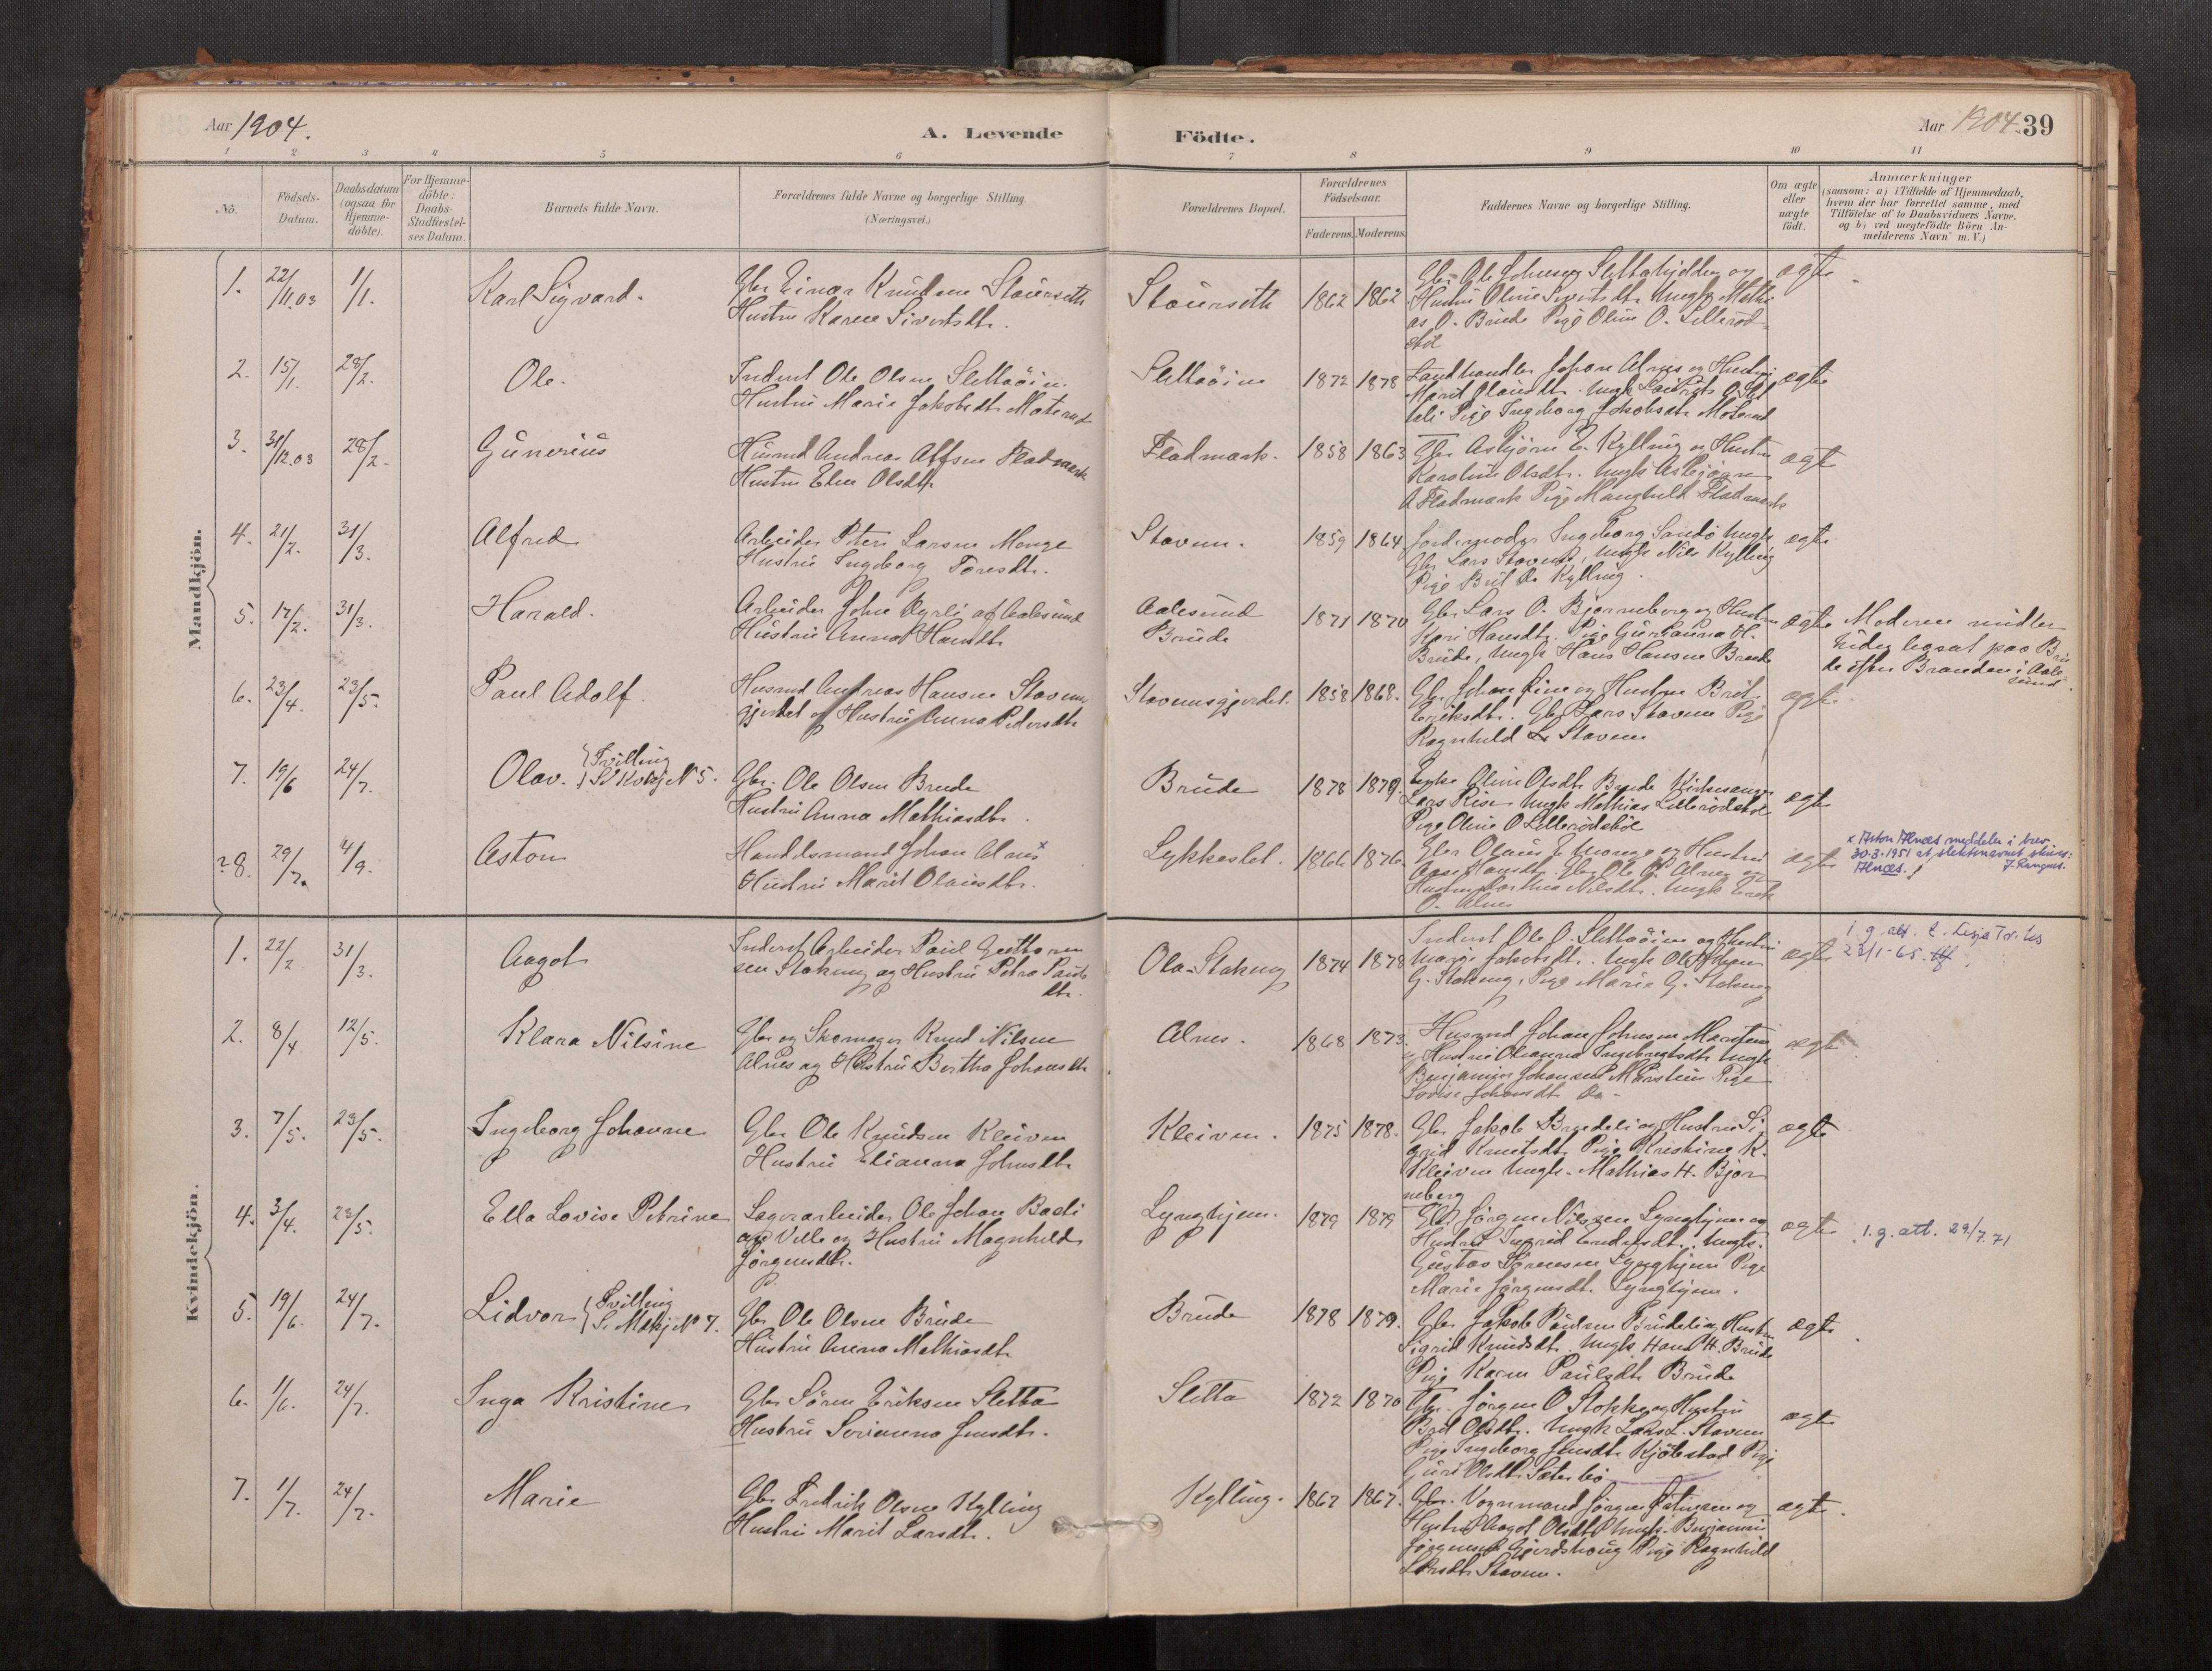 Aar 1904.
A. Levende Födte.
Aar 1904. 39
1 2 3 4 5 6 7 8 9 10 11
No.
Födsels-Datum.
Daabsdatum (ogsaa for Hjemme-döbte).
For Hjemme-döbte: Daabs-Stadfæstel-ses Datum.
Barnets fulde Navn.
Forældrenes fulde Navne og borgerlige Stilling. (Næringsvei.)
Forældrenes Bopæl.
Forældrenes Födselsaar.
Faderens. Moderens.
Faddernes Navne og borgerlige Stilling.
Om ægte eller uægte födt.
Anmærkninger
(saasom: a) i Tilfælde af Hjemmedaab,
hvem der har forrettet samme, med
Tilföielse af to Daabsvidners Navne.
og b) ved uægtefödte Börn An-
melderens Navn m. V.)
Mandkjön.
1. 22/11.03 1/1. Karl Sigvard.
Gbr Einar Knudsen Stoierseth
Hustru Karen Sivertsdtr.
Stoierseth 1862 1862
Gbr Ole Johnsen Slettahjelden og
Hustru Oline Sivertsdtr. Ungk Mathi
as O. Brude Pige Oline O. Lillerød-
støl
ægte
2. 15/1. 28/2. Ole.
Inderst Ole Olsen Slettaöien
Hustru Marie Jakobsdtr
Slettaöien 1872 1878
Landhandler Johan Alnes og Hustru
Marit Olausdtr. Ungk
Pige Ingeborg Jakobsdtr
ægte
3. 31/12.03 28/2. Gunerius
Husmd Andreas Alfsen Fladmark
Hustru Elen Olsdtr
Fladmark. 1858 1863
Gbr Asbjørn E. Kylling og Hustru
Karoline Olsdtr. Ungk Asbjørn
A Fladmark Pige Manghild Fladmark
ægte
4. 21/2. 31/3. Alfred
Arbeider Peter Larsen Monge
Hustru Ingeborg Toresdtr.
Staven. 1859 1864
Jordemoder Ingeborg Sandö Ungk
Gbr Lars Staven, Ungk Nils Kylling
Pige Brit O. Kylling.
ægte
5. 17/2. 31/3. Harald.
Arbeider John Myrli af Aalesund
Hustru Anna Hansdtr
Aalesund
Brude 1871 1870
Gbr Lars O. Bjørneberg og Hustru
Kari Hansdtr. Pige Gurhanna H.
Brude, Ungk Hans Hansen Brude
ægte
Moderen midler
tidig bosat paa Bru
de efter Branden i Aale-
sund.
6. 23/4. 23/5. Paul Adolf.
Husmd Andreas Hansen Stavens
gjerdet og Hustru Anna Pedersdtr
Stavensgjerdet. 1858 1868.
Gbr Johan Rine og Hustru Brit
Eriksdtr. Gbr Lars Staven Pige
Ragnhild L. Staven
ægte
7. 19/6 24/7. Olav. {Tvilling Se Kvkj No 5.
Gbr. Ole Olsen Brude
Hustru Anna Mathiasdtr.
Brude 1878 1879.
Enke Oline Olsdtr Brude Kirkesanger
Lars Rise Ungk Mathias Lillerødstøl
Pige Oline O Lillerødstøl
ægte
?8. 29/7. 4/9. Aston
Handelsmand Johan Alnes x
Hustru Marit Olausdtr.
Lykkeslet. 1866 1876.
Gbr Olaus E Monge og Hustru
Aase Hansdtr. Gbr Ole P. Alnes og
Hustru Marthea Nilsdtr. Ungk Erik
O. Alnes
ægte
x Aston Alnæs meddeler i brev
30-3-1951 at slektsnavnet skrives:
Alnæs.
Kvindekjön.
1. 22/2 31/3. Aagot
Inderst Arbeider Paul Gutthorm
sen Stokeng og Hustru Petra Pauls
dtr.
Ola-Stokeng 1874 1878
Inderst Ole O. Slettaöien og Hustru
Marie Jakobsdtr. Ungk Ole Johan
G. Stokeng, Pige Marie G. Stokeng
ægte
1. g. att. t. Lesja Tr.
28/1-65.
2. 8/4 12/5. Klara Nilsine
Gbr og Skomager Knud Nilsen
Alnes og Hustru Bertha Johansdtr
Alnes. 1868 1873.
Husmd Johan Johnsen Marstein
og Hustru Olianna Ingebrigtsdtr Ungk
Benjamin Johansen Marstein Pige
Lovise Johansdtr do -
ægte
3. 7/5. 23/5. Ingeborg Johanne
Gbr Ole Knudsen Kleiven
Hustru Elianna Johnsdtr
Kleiven. 1875 1878.
Gbr Jakob Brudeli og Hustru Si
grid Knutsdtr Pige Kristine K.
Kleiven Ungk. Mathias H. Bjør
neberg
ægte
4. 3/4. 23/5. Ella Lovise Petrine
Lagerarbeider Ole Johan Basti
an Velle og Hustru Magnhild
Jörgensdtr.
Lynghjem. 1879 1879
Gbr Jörgen Nilssen Lyngheim og
Hustru Ingrid Endresdtr. Ungk.
Gustav Sørensen Lyngheim Pige
Marie Jörgensdt. Lynghjem.
ægte
1. g. att. 29/7.71
5. 19/6. 24/7. Lidvor {Tvilling Se Mkj No 7.
Gbr Ole Olsen Brude
Hustru Anna Mathiasdt
Brude 1878 1879.
Gbr Jakob Paulsen Brudeli og Hustru
Sigrid Knudsdt. Ungk Hans H. Brude
Pige Karen Paulsdt Brude
ægte
6. 1/6. 24/7. Inga Kristine
Gbr Sören Eriksen Sletta
Hustru Serianna Jensdtr.
Sletta 1872 1870
Gbr. Jörgen O Stokke og Hustru
Brit Olsdtr. Ungk Lars L. Staven
Pige Ingeborg Jensdtr Kjölstad Pige
Guri Olsdtr Sæterbö
ægte
7. 1/7. 24/7. Marie
Gbr Fredrik Olsen Kylling
Hustru Marit Larsdtr.
Kylling. 1867 1867.
Gbr. Vognmand Jörgen og
Hustru Aagot Olsdtr Ungk. Benjamin
Jörgensen Gjerdshaug Pige Ragnhild
Larsdtr Staven.
ægte.